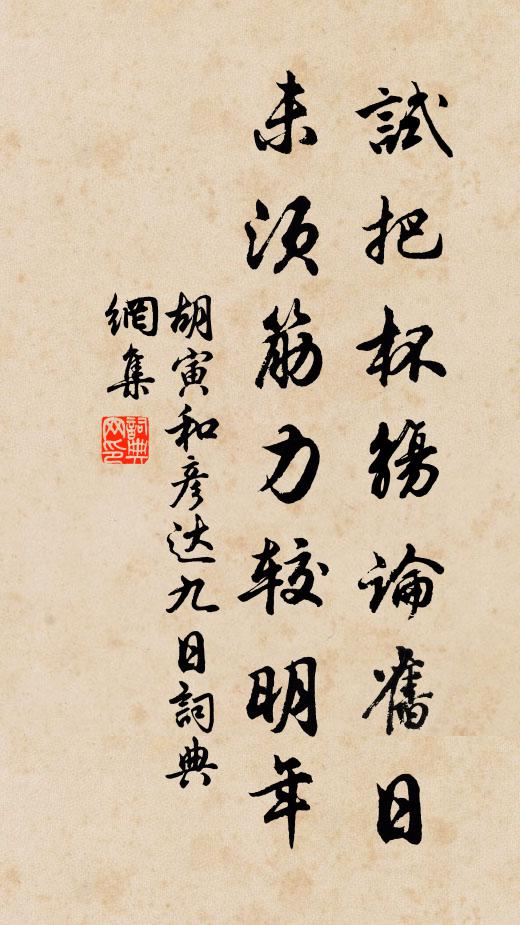 試把杯觴論舊日
未須筋力較明年
胡寅和彦达九日詞典
網集
詞典网印